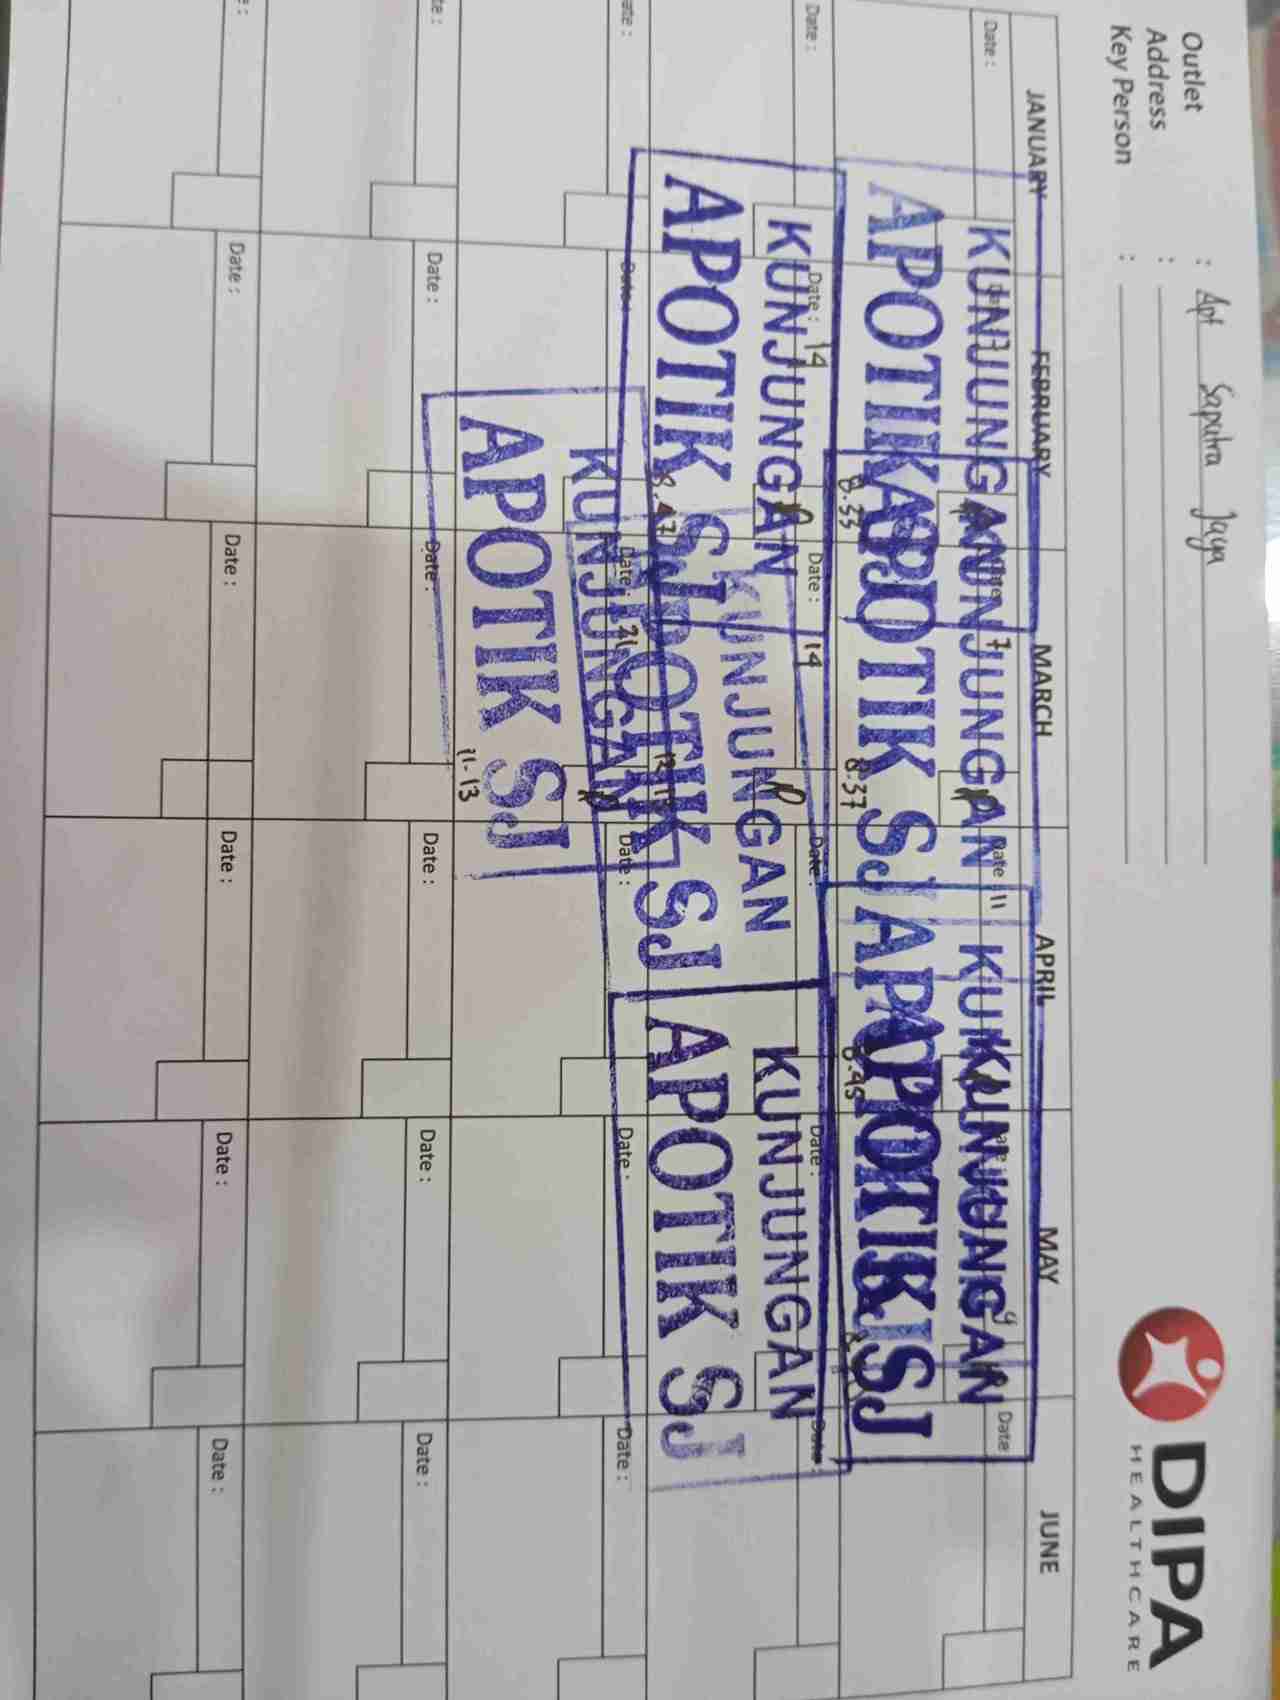 Outlet : Apt Saputra Jaya
Address :
Key Person :
DIPA
HEALTHCARE
JANUARY FEBRUARY MARCH APRIL MAY JUNE
Date : Date : 7 Date : 11 Date :
KUNJUNGAN KUNJUNGAN KUNJUNGAN
APOTIK SJ APOTIK SJ APOTIK SJ
8.33 8.37 8.45
Date : Date : 14 Date : 14 Date : Date : Date :
KUNJUNGAN KUNJUNGAN KUNJUNGAN
APOTIK SJ APOTIK SJ APOTIK SJ
8.47
Date : Date : Date : 21 Date : Date : Date :
KUNJUNGAN
APOTIK SJ
11-13
Date : Date : Date : Date : Date : Date :
Date : Date : Date : Date : Date :